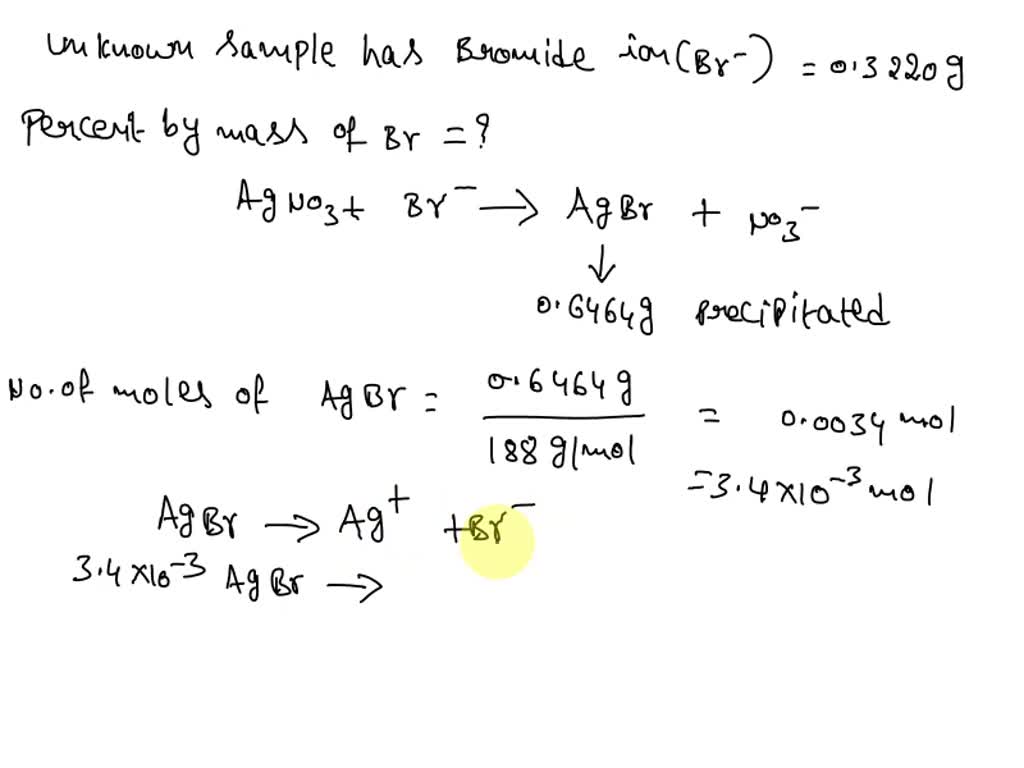 Unknown sample has Bromide ion (Br⁻) = 0.3220g
Percent by mass of Br = ?
AgNO₃ + Br⁻ → AgBr + NO₃⁻
↓
0.6464g precipitated
No. of moles of AgBr = 0.6464g / 188 g/mol = 0.0034 mol
= 3.4 × 10⁻³ mol
AgBr → Ag⁺ + Br⁻
3.4 × 10⁻³ AgBr →